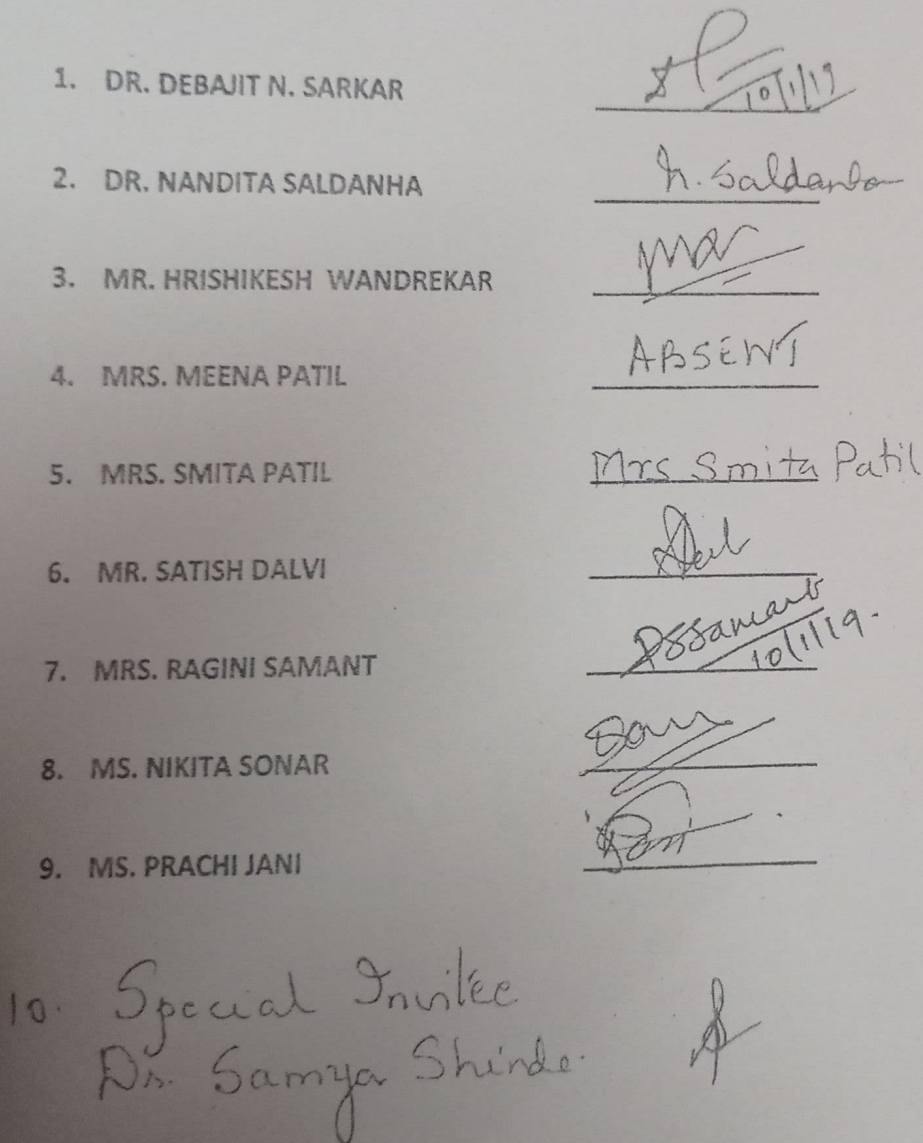 1. DR. DEBAJIT N. SARKAR 10/1/19
2. DR. NANDITA SALDANHA N. Saldanha
3. MR. HRISHIKESH WANDREKAR
4. MRS. MEENA PATIL ABSENT
5. MRS. SMITA PATIL Mrs Smita Patil
6. MR. SATISH DALVI
7. MRS. RAGINI SAMANT RSSamant 10/1/19.
8. MS. NIKITA SONAR
9. MS. PRACHI JANI
10. Special Invitee
Dr. Samya Shinde.